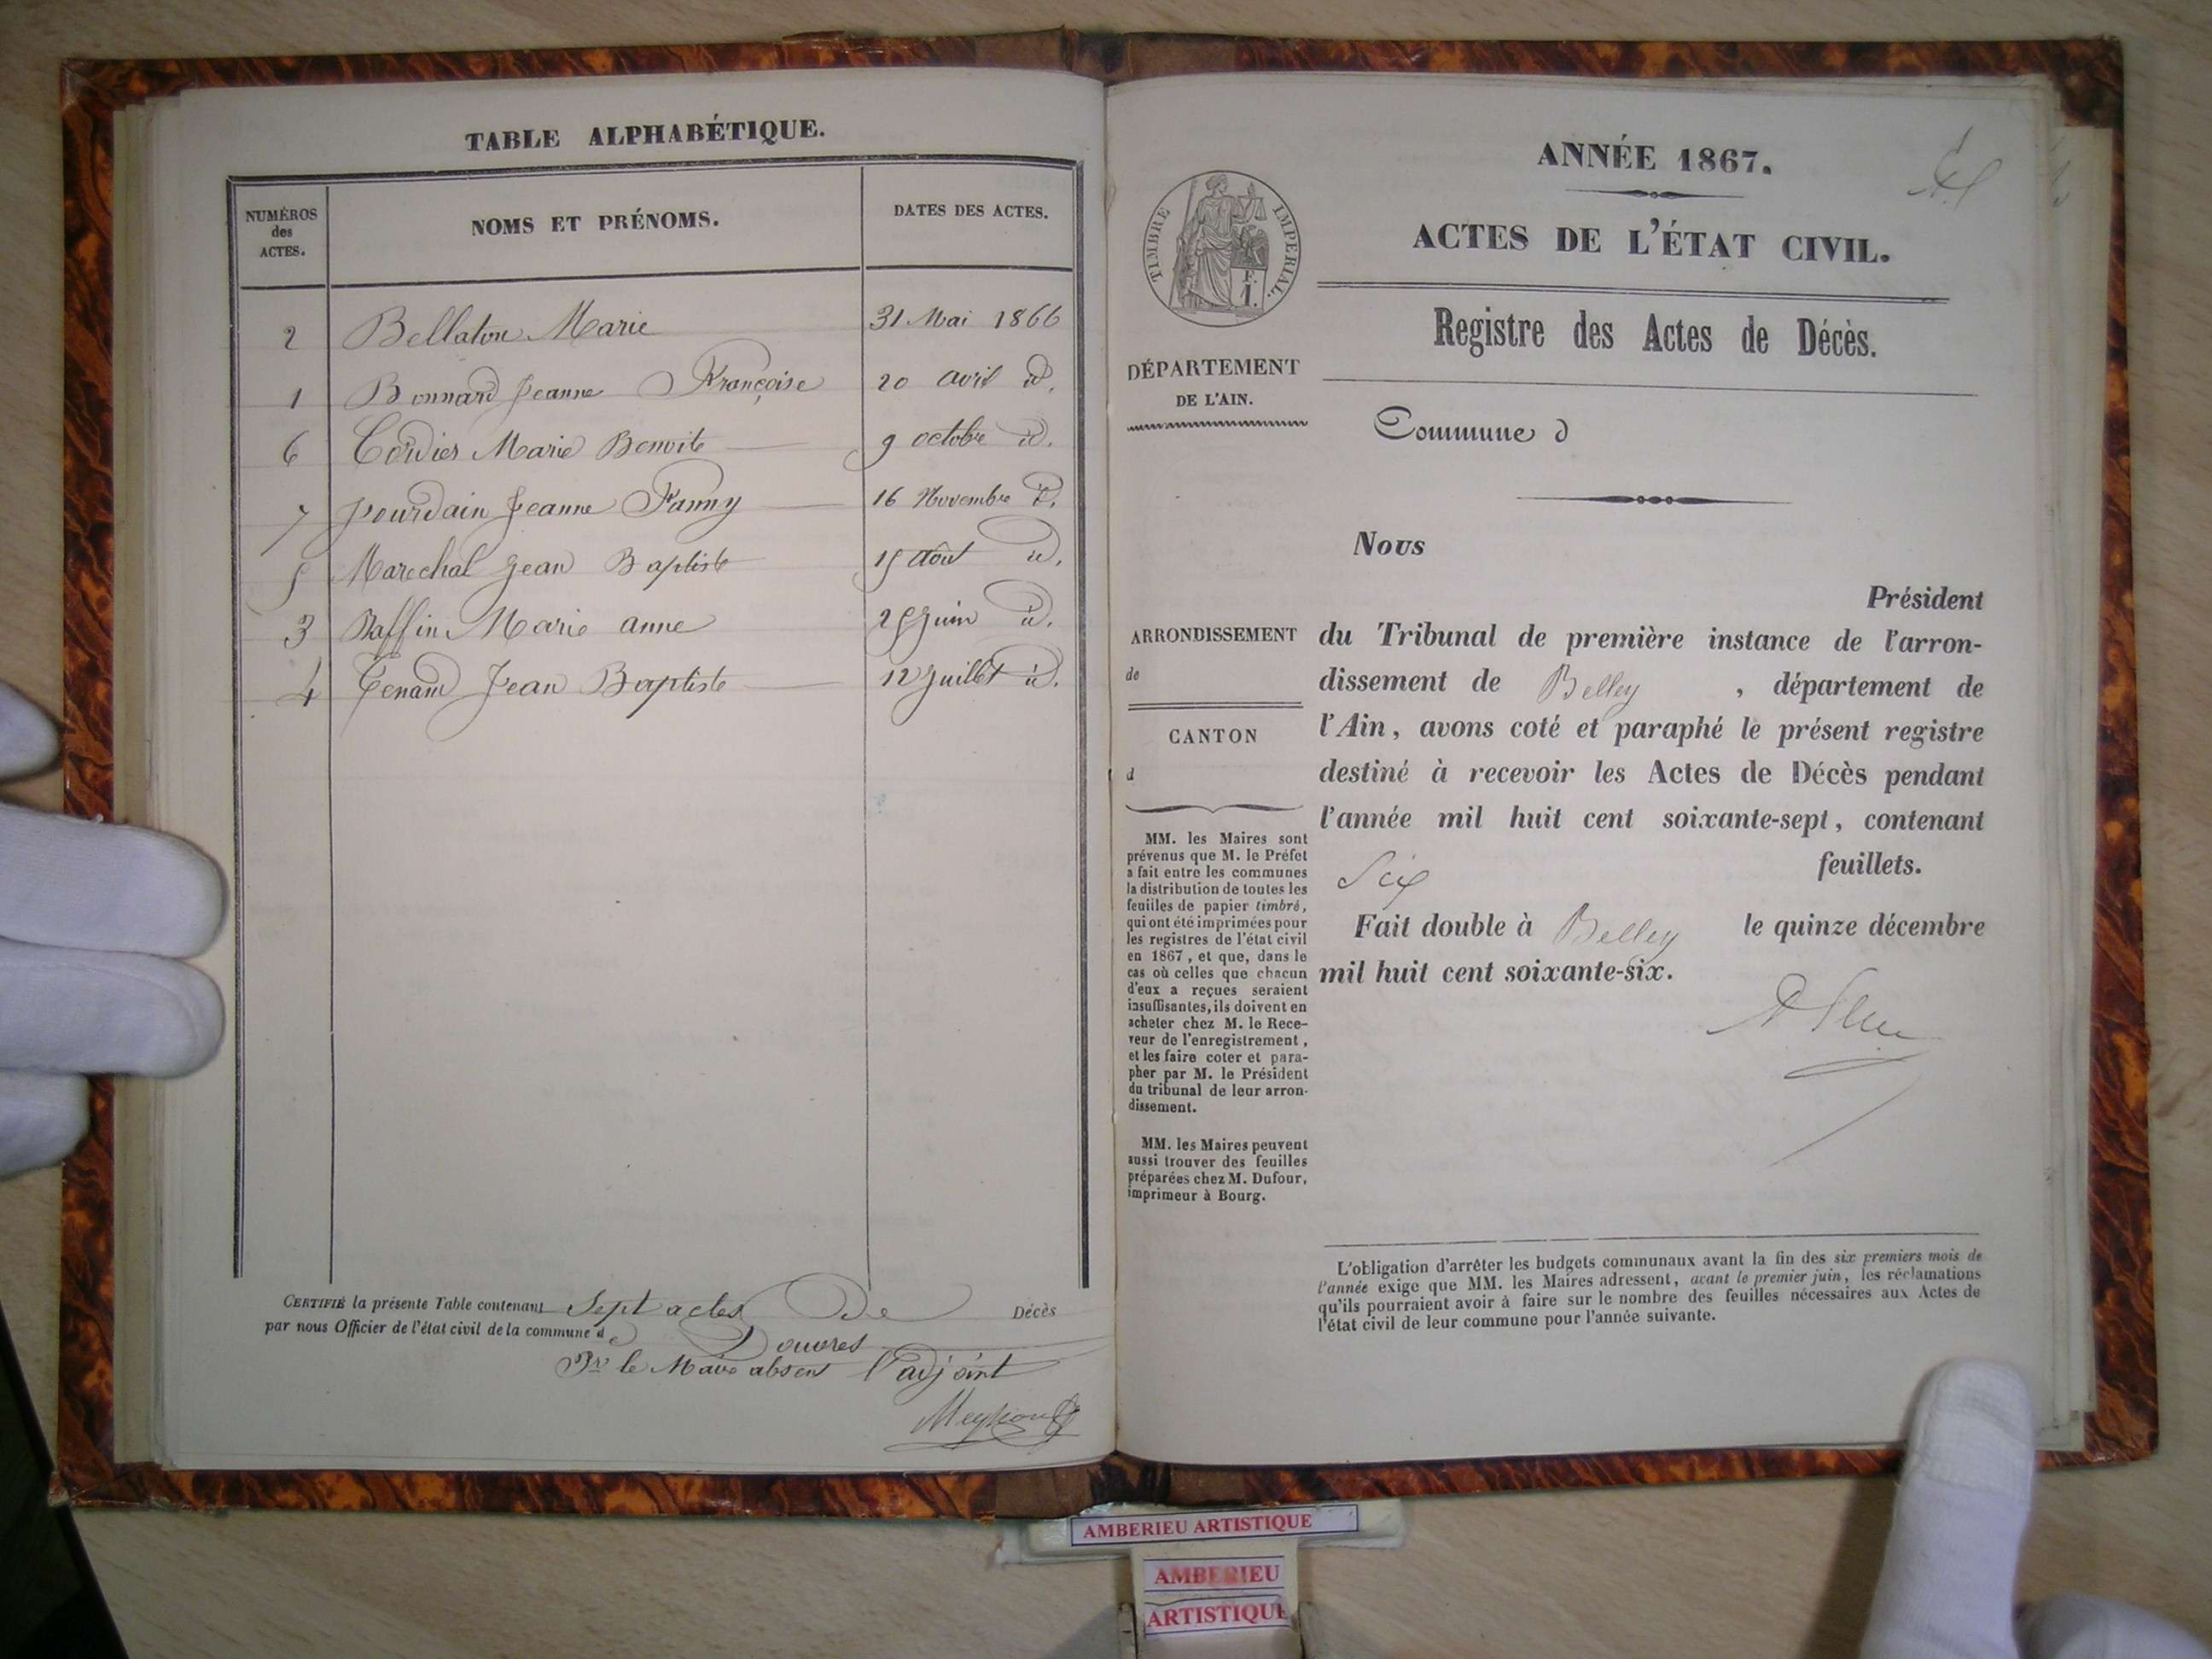 TABLE ALPHABÉTIQUE.
NUMÉROS
des
ACTES.
NOMS ET PRÉNOMS.
DATES DES ACTES.
2 Bellaton Marie 31 Mai 1866
1 Bonnard Jeanne Françoise 20 avril id.
6 Cordier Marie Benoite 9 octobre id.
7 Jourdain Jeanne Fanny 16 Novembre id.
5 Marechal Jean Baptiste 15 Août id.
3 Raffin Marie anne 25 Juin id.
4 Tenand Jean Baptiste 12 Juillet id.
CERTIFIÉ la présente Table contenant Sept actes De Décès
par nous Officier de l'état civil de la commune de Douvres
Pr le Maire absent l'adjoint
ANNÉE 1867.
ACTES DE L'ÉTAT CIVIL.
Registre des Actes de Décès.
TIMBRE IMPÉRIAL.
F.
1.
DÉPARTEMENT
DE L'AIN.
Commune d
Nous
Président
du Tribunal de première instance de l'arron-
dissement de Belley , département de
l'Ain, avons coté et paraphé le présent registre
destiné à recevoir les Actes de Décès pendant
l'année mil huit cent soixante-sept, contenant
Six feuillets.
Fait double à Belley le quinze décembre
mil huit cent soixante-six.
ARRONDISSEMENT
de
CANTON
d
MM. les Maires sont
prévenus que M. le Préfet
a fait entre les communes
la distribution de toutes les
feuilles de papier timbré,
qui ont été imprimées pour
les registres de l'état civil
en 1867, et que, dans le
cas où celles que chacun
d'eux a reçues seraient
insuffisantes, ils doivent en
acheter chez M. le Rece-
veur de l'enregistrement,
et les faire coter et para-
pher par M. le Président
du tribunal de leur arron-
dissement.
MM. les Maires peuvent
aussi trouver des feuilles
préparées chez M. Dufour,
imprimeur à Bourg.
L'obligation d'arrêter les budgets communaux avant la fin des six premiers mois de
l'année exige que MM. les Maires adressent, avant le premier juin, les réclamations
qu'ils pourraient avoir à faire sur le nombre des feuilles nécessaires aux Actes de
l'état civil de leur commune pour l'année suivante.
AMBERIEU ARTISTIQUE
AMBERIEU
ARTISTIQUE